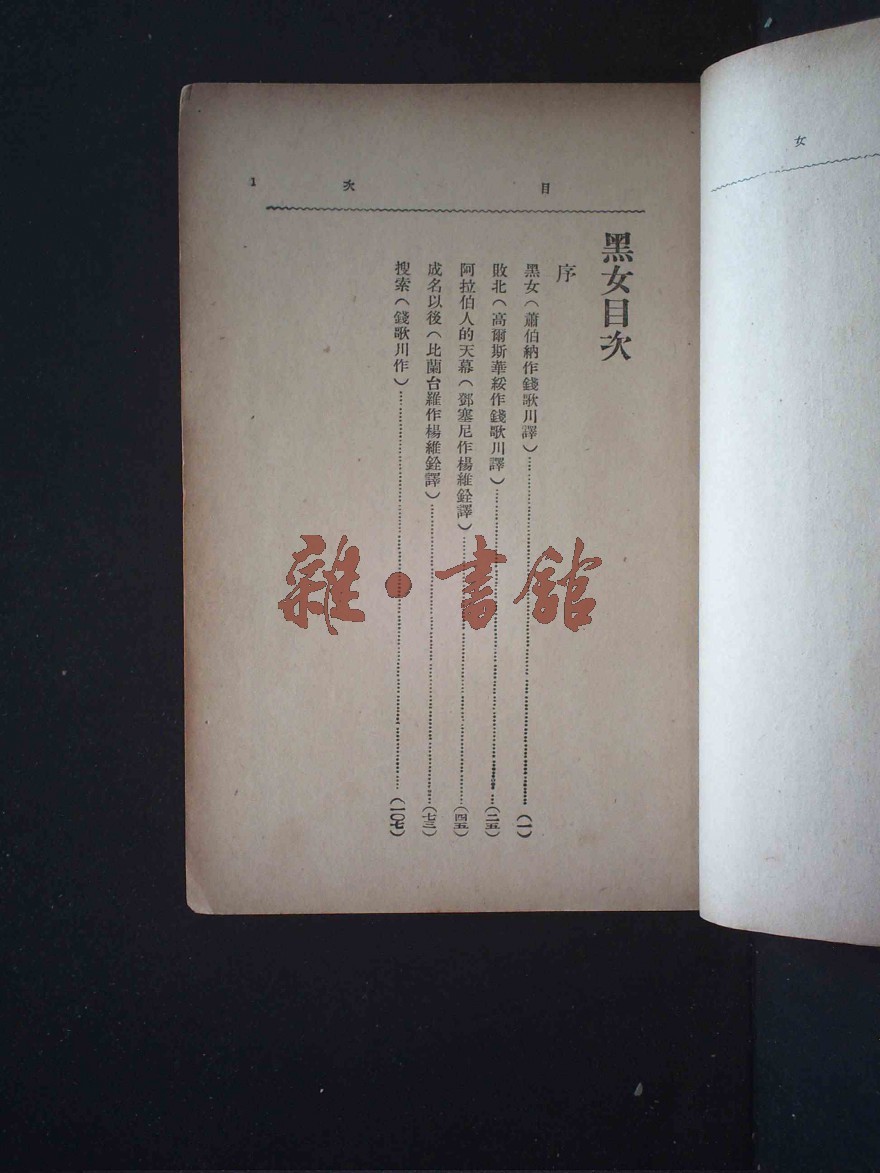 女
目次
1
黑女目次
序
黑女(蕭伯納作錢歌川譯)…………(一)
敗北(高爾斯華綏作錢歌川譯)…………(二五)
阿拉伯人的天幕(鄧塞尼作楊維銓譯)…………(四五)
成名以後(比蘭台羅作楊維銓譯)…………(七三)
搜索(錢歌川作)…………(一〇七)
雜·書館